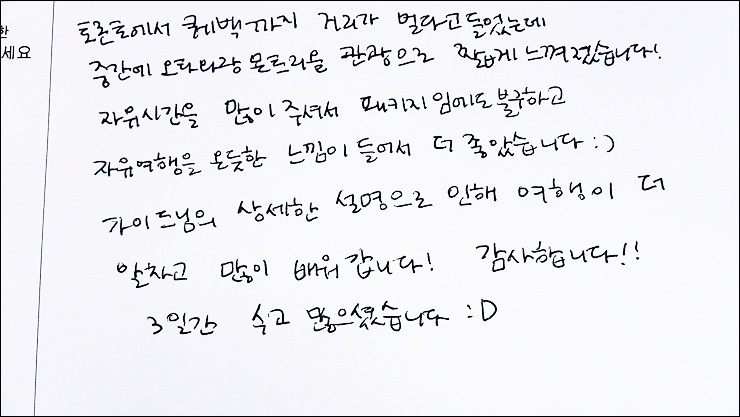 한
세요
토론토에서 퀘벡까지 거리가 멀다고 들었는데
중간에 오타와랑 몬트리올 관광으로 짧게 느껴졌습니다!
자유시간을 많이 주셔서 패키지임에도 불구하고
자유여행을 온듯한 느낌이 들어서 더 좋았습니다 :)
가이드님의 상세한 설명으로 인해 여행이 더
알차고 많이 배워갑니다! 감사합니다!!
3일간 수고 많으셨습니다 :D